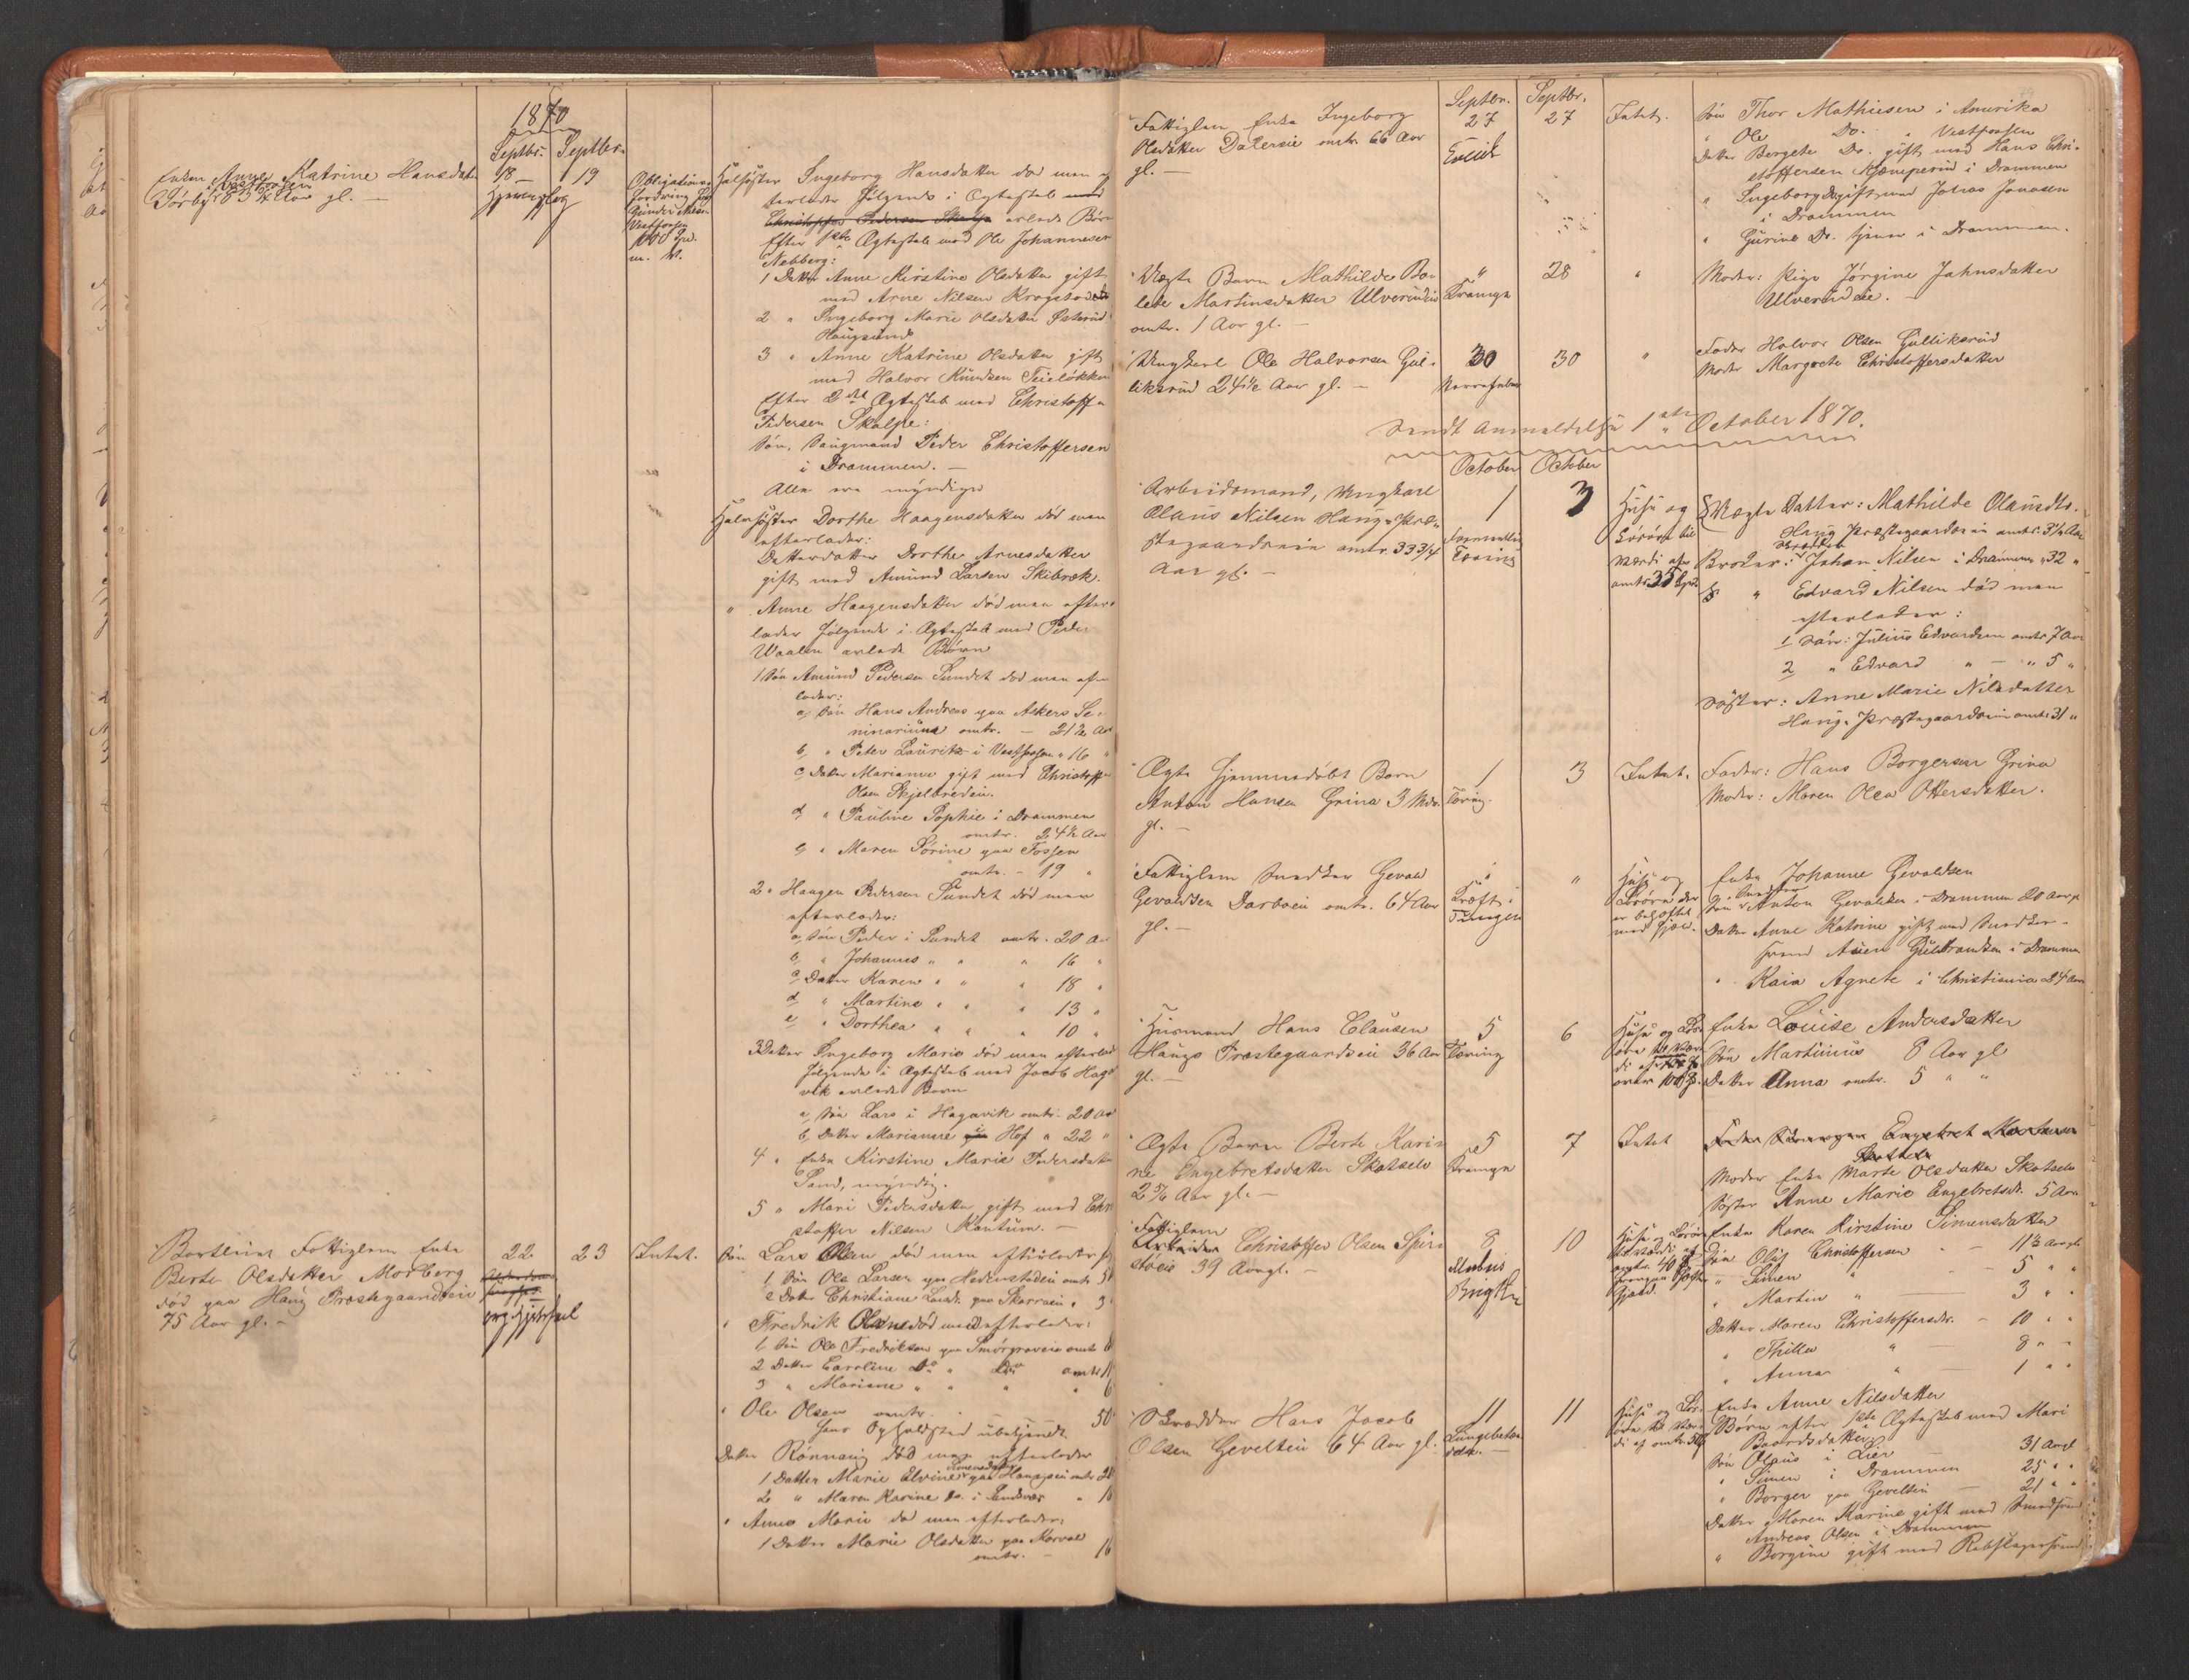 1870
Septbr. Septbr.
Enken Anne Katrine Hansdatter 18 19
Vestfossen
Hjerneslag
Obligations-
fordring hos
Vestfossen
Halsøster Ingeborg Hansdatter død men
terlader følgende i Ægteskab med
Christoffer Pedersen Skalpe avlede Børn
Efter 1ste Ægteskab med Ole Johannesen
Nebberg:
1 Datter Anne Kirstine Olsdatter gift
med Arne Nilsen Krogstad
2 " Ingeborg Marie Olsdatter
Haugsund
3 " Anne Katrine Olsdatter gift
med Halvor Knudsen
Efter 2det Ægteskab med Christoffer
Pedersen Skalpe:
Søn, Peder Christoffersen
i Drammen. —
Alle ere myndige
Halvsøster Dorthe Haagensdatter død men
efterlader:
Datterdatter Dorthe Arnesdatter
gift med Amund Larsen Skibræk.
" Anne Haagensdatter død men efter-
lader følgende i Ægteskab med Peder
Waalen avlede Børn
1 Søn Amund Pedersen Sundet død men efter
lader:
a, Søn Hans Andreas paa Askers Se-
minarium omtr. — 21½ Aar
b, " Peter Lauritz i Vestfossen " 16 "
c Datter Marianne gift med Christoffer
Olsen
d " Pauline Sophie i Drammen
omtr. 24½ Aar
e, " Maren Sørine paa Fossen
omtr. — 19 "
2 " Haagen Pedersen Sundet død men
efterlader:
a, Søn Peder i Sundet omtr. 20 Aar
b, " Johannes " " " 16 "
c Datter Karen " " " 18 "
d " Martine " " " 13 "
e, " Dorthea " " " 10 "
3 Datter Ingeborg Marie død men efterlader
følgende i Ægteskab med Jacob Haga
vik avlede Børn
a, Søn Lars i Hagavik omtr. 20 Aar
b, Datter Marianne i Hof " 22 "
4 " Enke Kirstine Marie Pedersdatter
Sand, myndig.
5 " Mari Pedersdatter gift med Chri
stoffer Nilsen Kantum. —
Fattiglem Enke 22 23 Intet.
Berte Olsdatter Morberg
død paa Haug Præstegaardseie
75 Aar gl. —
Søn Lars Olsen død men efterlader
1, Søn Ole Larsen paa Hedenstadeie omtr
2 Datter Christiane Larsdr. paa
" Fredrik Olsen død men efterlader:
1, Søn Ole Fredriksen paa Smørgraveie omtr
2 Datter Caroline Do " Do omtr
3 " Mariane " " "
" Ole Olsen omtr. — 50
hans Opholdssted ubekjendt
Datter Rønnaug død men efterlader
1 Datter Marie Elvine
2 " Maren Karine Do. i
" Anne Marie død men efterlader:
1 Datter Marie Olsdatter paa
omtr. — 16
Septbr. Septbr.
Fattiglem Enke Ingeborg 27 27 Intet.
Olsdatter Dalerseie omtr. 66 Aar
gl. —
Søn Thor Mathiesen i Amerika
" Ole Do. " Vestfossen
Datter Bergete Do. gift med Hans Chri-
stoffersen Kjæmperud i Drammen
" Ingeborg Do gift med Johas Jonasen
i Drammen
" Gurine Do. tjener i Drammen.
Uægte Barn Mathilde Bo- " 28 "
lette Martinsdatter Ulverudeie Krampe
omtr. 1 Aar gl. —
Moder: Pige Jørgine Jahnsdatter
Ulverudeie.
Ungkarl Ole Halvorsen Gul- 30 30 "
liksrud 24½ Aar gl. —
Fader Halvor Olsen Gulliksrud
Moder Margrete Christoffersdatter
Sendt Anmeldelse 1ste October 1870.
October October
Arbeidsmand, Ungkarl 1 3
Olaus Nilsen Haugs Præ-
stegaardseie omtr. 33 3/4
Aar gl. —
Tæring
Huse og
Løsøre til
Værdi af
omtr. 35 Spd.
Uægte Datter: Mathilde Olausdtr.
Haug Præstegaardseie omtr. 3½ Aar
Broder: Johan Nilsen i Drammen " 32 "
" Edvard Nilsen død men
efterlader:
1 Søn: Julius Edvardsen omtr. 7 Aar
2 " Edvard " — " 5 "
Søster: Anne Marie Nilsdatter
Haugs Præstegaardseie omtr. 31 "
Ægte hjemmedøbt Barn 1 3 Intet.
Anton Hansen Grina 3 Mdr. Tæring.
gl. —
Fader: Hans Borgersen Grina
Moder: Maren Olea Ottersdatter.
Fattiglem Snedker Gevald " "
Gevaldsen Darboeie omtr. 64 Aar
gl. —
Kræft i
Tungen
Huse og
Løsøre der
er behæftet
med Gjæld.
Enke Johanne Gevaldsen
Snedker
Søn Anton Gevaldsen i Drammen 20 Aar gl
Datter Anne Katrine gift med Snedker-
svend Auen Gulbrandsen i Drammen
" Kaia Agnete i Christiania 24 Aar
Husmand Hans Clausen 5 6
Haugs Præstegaardseie 36 Aar Tæring
gl. —
Huse og Løs-
øre til Vær-
di af
omtr. 100 Spd.
Enke Louise Andersdatter
Søn Martinius 8 Aar gl
Datter Anna omtr. 5 " "
Ægte Barn Berte Kari- 5 7 Intet
ne Engebretsdatter Skotselv Krampe
2 5/6 Aar gl. —
Fader Engebret
Moder Enke Marte Olsdatter Skotselv
Søster Anne Marie Engebretsdr. 5 Aar
Fattiglem
Arbeider Christoffer Olsen Spir- 8 10
39 Aar gl. —
Morbus
Brigthi
Huse og Løsøre
til Værdi af
omtr. 40 Spd
Gjæld.
Enke Karen Kirstine Simensdatter
Søn Oluf Christoffersen — 11½ Aar gl
" Simen " — 5 " "
" Martin " — 3 " "
Datter Maren Christoffersdr. — 10 " "
" Thilla " — 8 " "
" Anna " — 1 " "
Skrædder Hans Jacob 11 11
Olsen Gevelteie 64 Aar gl.
Lungebetæn
delse. —
Huse og Løs-
øre til Vær-
di af omtr. 50
Enke Anne Nilsdatter
Børn efter 1ste Ægteskab med Mari
Baardsdatter:
Søn Olaus i Lier — 31 Aar gl
" Simen i Drammen 25 " "
" Borger paa Gevelteie — 21 " "
Datter Maren Karine gift med Smedsvend
Andreas Olsen i Drammen
" Borgine gift med Rebslagersvend